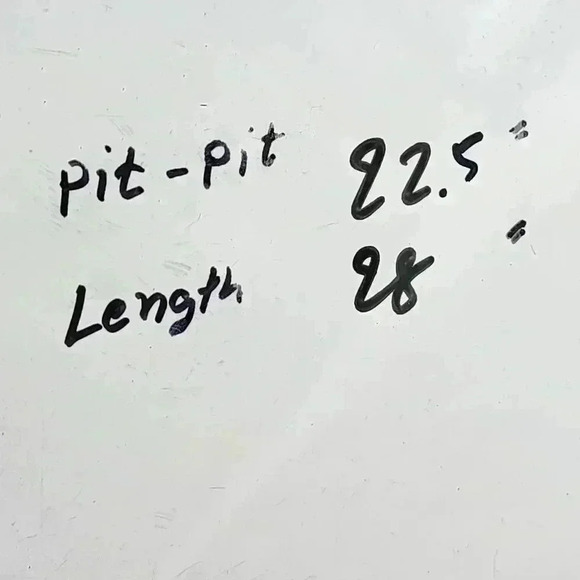 Pit-Pit 22.5"
Length 28"